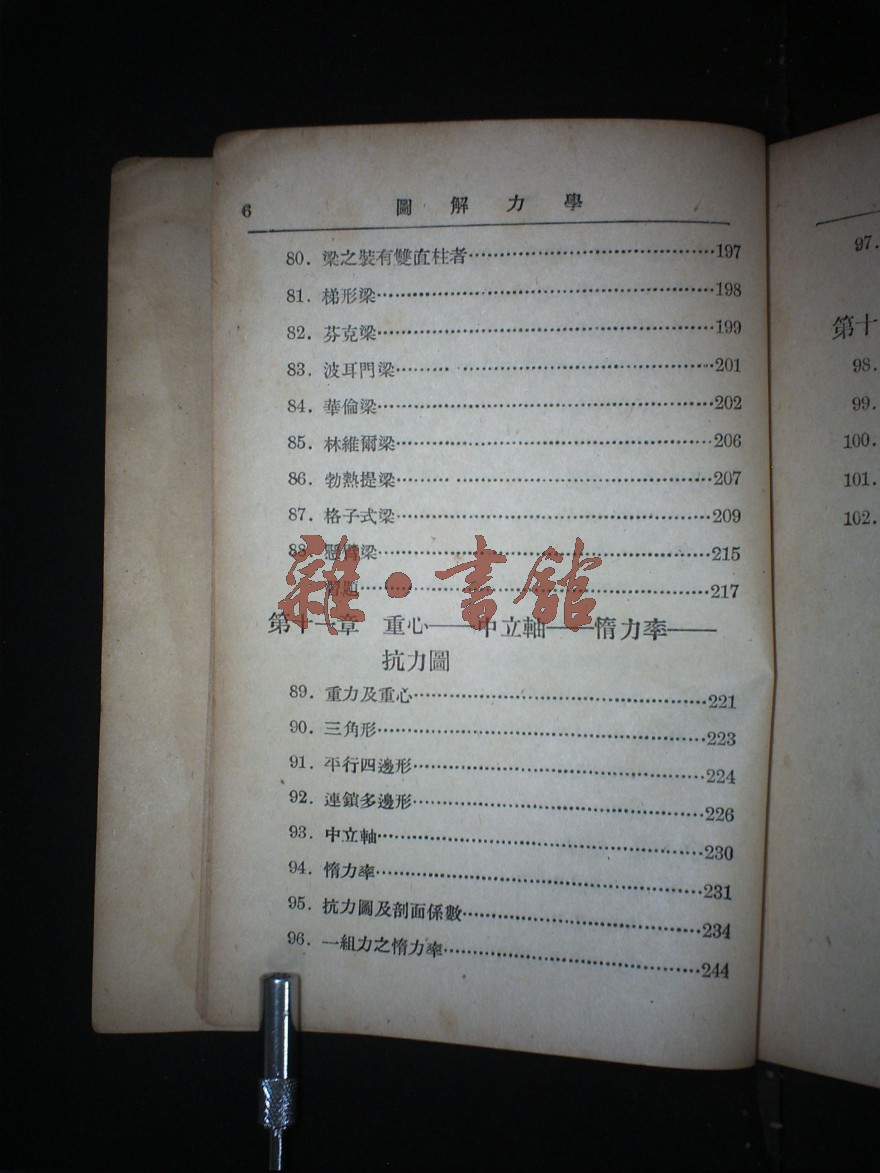 6 圖解力學
80. 梁之裝有雙直柱者……197
81. 梯形梁……198
82. 芬克梁……199
83. 波耳門梁……201
84. 華倫梁……202
85. 林維爾梁……206
86. 勃熱提梁……207
87. 格子式梁……209
88. 懸臂梁……215
習題……217
第十一章 重心——中立軸——惰力率——
抗力圖
89. 重力及重心……221
90. 三角形……223
91. 平行四邊形……224
92. 連鎖多邊形……226
93. 中立軸……230
94. 惰力率……231
95. 抗力圖及剖面係數……234
96. 一組力之惰力率……244
雜·書館
97.
第十
98.
99.
100.
101.
102.